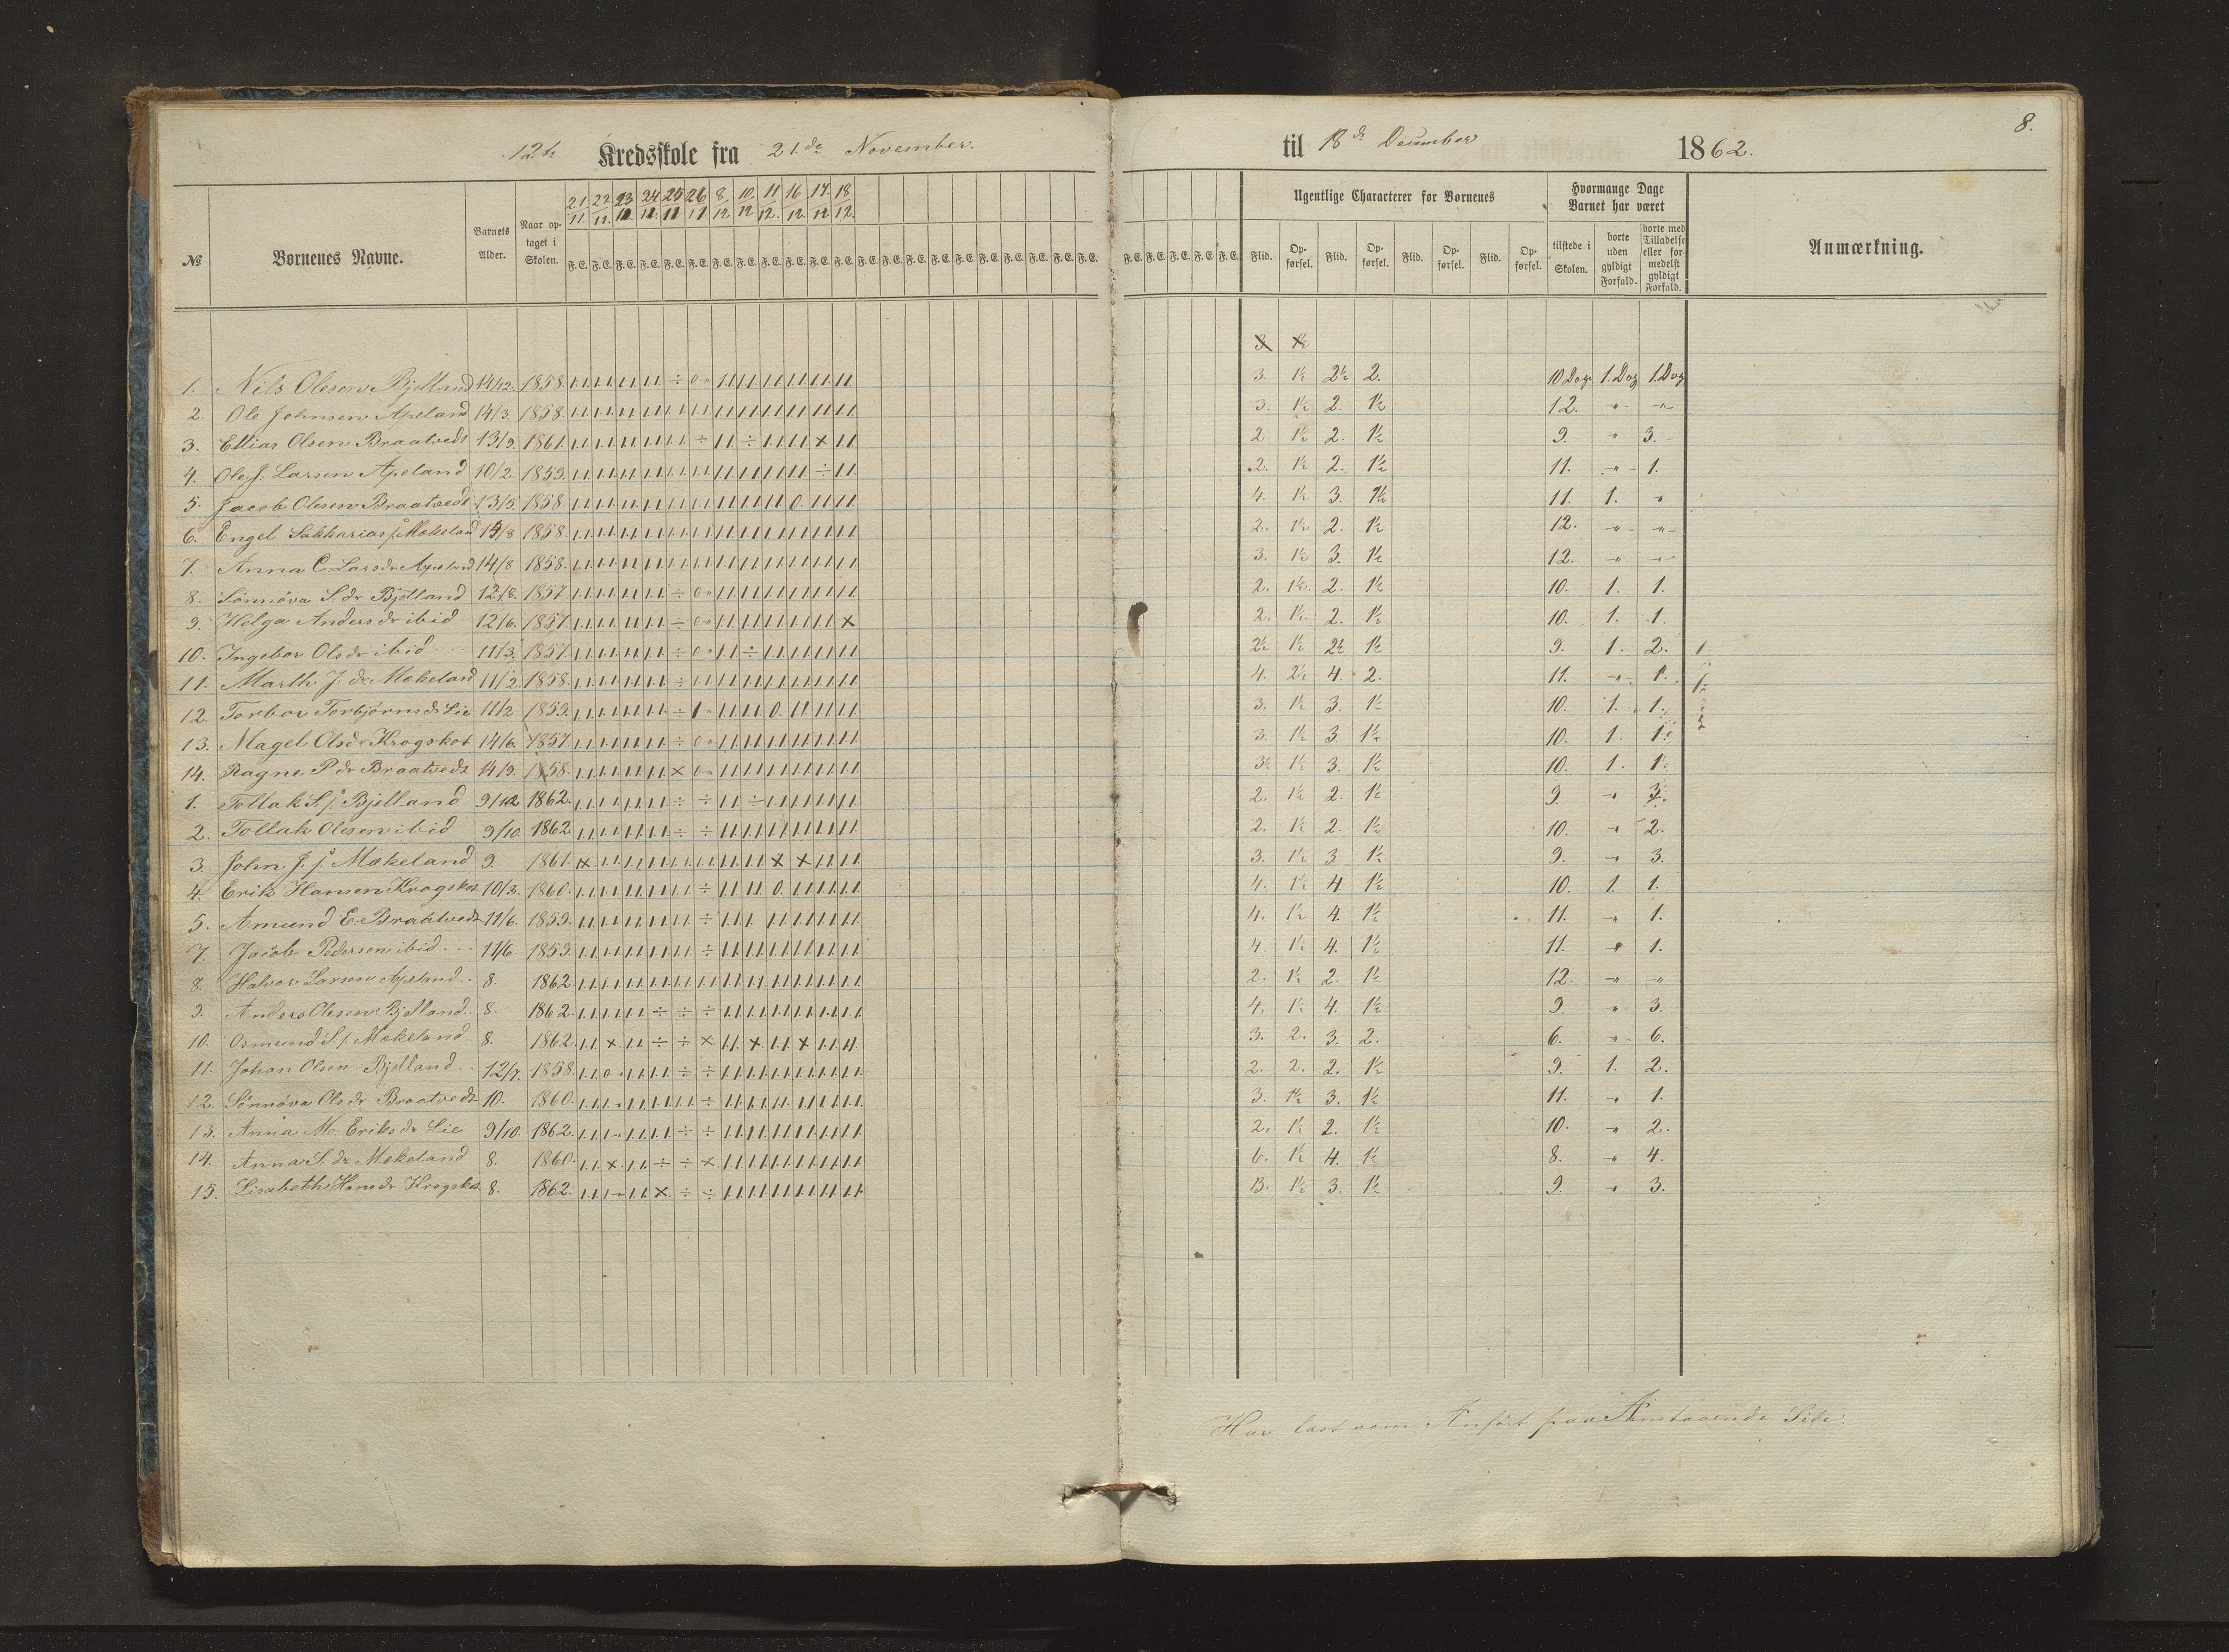 8.
12te Kredsskole fra 21.de November. til 18de December 1862.
№ Børnenes Navne. Barnets Alder. Naar op- taget i Skolen. 21/11. 22/11. 23/11 24/11. 25/11 26/11. 8/12 10/12 11/12. 16/12. 17./12 18/12. Ugentlige Characterer for Børnenes Hvormange Dage Barnet har været Anmærkning.
F.E. F.E. F.E. F.E. F.E. F.E. F.E. F.E. F.E. F.E. F.E. F.E. F.E. F.E. F.E. F.E. F.E. F.E. F.E. F.E. F.E. F.E. F.E. F.E. F.E. F.E. F.E. Flid. Op- førsel. Flid. Op- førsel. Flid. Op- førsel. Flid. Op- førsel. tilstede i Skolen. borte uden gyldigt Forfald. borte med Tilladelse eller for- medelst gyldigt Forfald.
1. Nils Olesen Bjelland 14/12. 1858. 3. 1½ 2½ 2. 10 Dage 1. Dag 1. Dag
2. Ole Johnsen Apeland 14/3. 1858. 3. 1½ 2. 1½ 12. " "
3. Ellias Olsen Braatvedt 13/9. 1861. 2 1½ 2. 1½ 9. " 3.
4. Ole J. Larsen Apeland 10/2. 1859. 2. 1½ 2. 1½ 11. " 1.
5. Jacob Olesen Braatvedt 13/5. 1858. 4. 1½ 3. 1½ 11. 1. "
6. Engel Sakkarias Mækeland 14/8 1858. 2. 1½ 2. 1½ 12. " "
7. Anna C. Larsdr Apeland 14/8 1858. 3. 1½ 3. 1½ 12. " "
8. Sönnöva S. dr Bjelland 12/8. 1857. 2. 1½ 2. 1½ 10. 1. 1.
9. Helga Andersdr ibid 12/6. 1857. 2. 1½ 2. 1½ 10. 1. 1.
10. Ingebor Olsdr ibid 11/3. 1857. 2½ 1½ 2½ 1½ 9. 1. 2.
11. Marth J. dr Mækeland 11/2. 1858. 4. 2½ 4. 2. 11. " 1.
12. Torbor Torbjörnsdr Lie 11/2 1859. 3. 1½ 3. 1½ 10. 1. 1.
13. Magel Olsdr Krogskot 14/6. 1857. 3. 1½ 3. 1½ 10. 1. 1.
14. Ragne P dr Braatvedt 14/9. 1858. 3½ 1½ 3. 1½ 10. 1. 1.
1. Tollak S. s. Bjelland 9/12. 1862. 2. 1½ 2. 1½ 9. " 3.
2. Tollak Olesen ibid 9/10. 1862. 2. 1½ 2. 1½ 10. " 2.
3. John J. s. Mækeland 9. 1861. 3. 1½ 3 1½ 9. " 3.
4. Erik Hansen Krogskot 10/3. 1860. 4. 1½ 4 1½ 10. 1. 1.
5. Amund E. Braatvedt 11/6. 1859. 4. 1½ 4. 1½ 11. " 1.
7. Jacob Pedersen ibid 11/6 1859. 4. 1½ 4. 1½ 11. " 1.
8. Halvor Larsen Apeland 8. 1862. 2. 1½ 2. 1½ 12. " "
9. Anders Olesen Bjelland. 8. 1862. 4. 1½ 4. 1½ 9. " 3.
10. Osmund S. s. Mækeland 8. 1862. 3. 2. 3. 2. 6. " 6.
11. Johan Olsen Bjelland 12/7. 1858. 2. 2. 2. 1½ 9. 1. 2.
12. Sönnöva Olsdr Braatvedt 10. 1860. 3. 1½ 3. 1½ 11. " 1.
13. Anna M. Eriksdr Lie 9/10. 1862. 2. 1½ 2. 1½ 10. " 2.
14. Anna S. dr Mækeland 8. 1860. 6. 1½ 4. 1½ 8. " 4.
15. Lisabeth Hansdr Krogskot 8. 1862. 3. 1½ 3. 1½ 9. " 3.
Har læst som Anført paa Side.